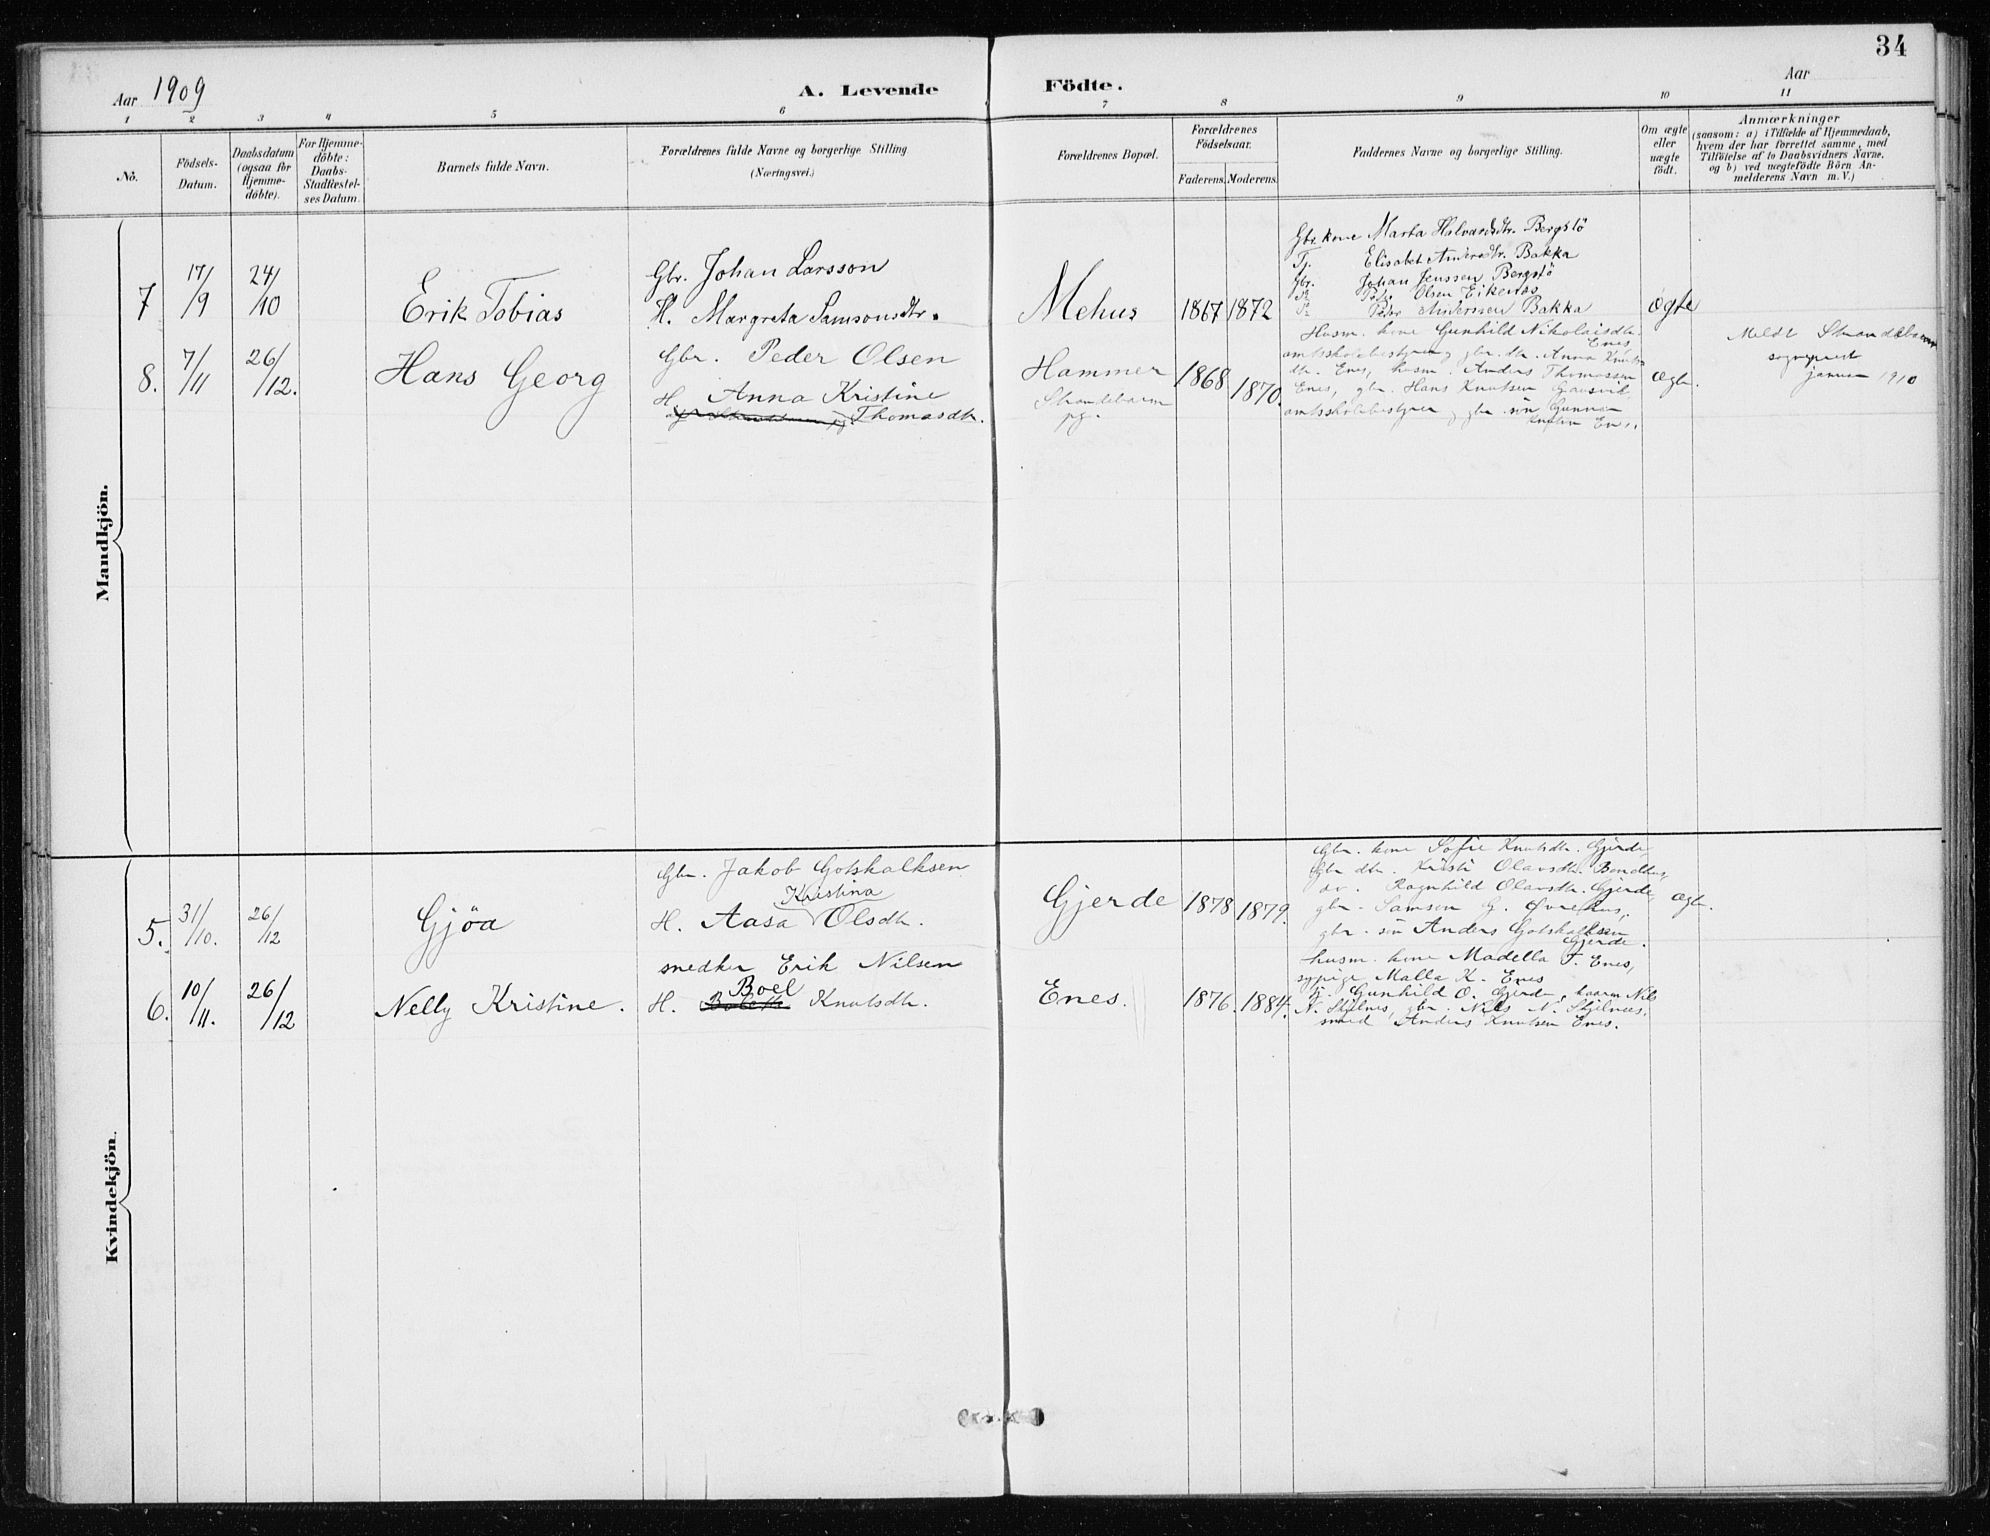 34
Aar 1909
A. Levende Födte.
Aar
1 2 3 4 5 6 7 8 9 10 11
No.
Födsels-
Datum.
Daabsdatum
(ogsaa for
Hjemme-
döbte).
For Hjemme-
döbte:
Daabs-
Stadfæstel-
ses Datum.
Barnets fulde Navn.
Forældrenes fulde Navne og borgerlige Stilling
(Næringsvei.)
Forældrenes Bopæl.
Forældrenes
Födselsaar.
Faderens. Moderens.
Faddernes Navne og borgerlige Stilling.
Om ægte
eller
uægte
födt.
Anmærkninger
(saasom: a) i Tilfælde af Hjemmedaab,
hvem der har forrettet samme, med
Tilföielse af to Daabsvidners Navne,
og b) ved uægtefödte Börn An-
melderens Navn m. V.)
Mandkjön.
7
17/9
24/10
Erik Tobias
Gbr. Johan Larsson
H. Margreta Samsonsdtr.
Mehus
1867 1872
Gbr. kone Marta Halvardsdtr. Bergstö
Tj. Elisabet Andersdtr. Bakka
Gbr. Johan Jenssen Bergstö
Peder Olsen Eikenæs
Peder Anderssen Bakka
ægte
8.
7/11
26/12.
Hans Georg
Gbr. Peder Olsen
H. Anna Kristine
Thomasdtr.
Hammer
Strandebarm
pg.
1868 1870.
Husm. kone Gunhild Nikolaisdtr.
Enes,
amtsskolebestyrer, gbr. dtr. Anna Knuts
dtr. Enes, husm. Anders Thomassen
Enes, gbr. Hans Knutsen Gausvik,
amtsskolebestyrer, gbr. sön Gunnar
Knutsen Enes.
ægte.
Meldt Strandebarm
sogneprest
januar 1910
Kvindekjön.
5.
31/10.
26/12
Gjöa
Gbr. Jakob Gotskalksen
Kristina
H. Aasa Olsdtr.
Gjerde
1878 1879.
Gbr. kone Sofie Knutsdtr. Gjerde,
Gbr. dtr. Kristi Olavsdtr. Bondhus,
do. Ragnhild Olavsdtr. Gjerde,
gbr. Samson G. Øvrehus,
gbr. sön Anders Gotskalksen
Gjerde.
ægte.
6.
10/11.
26/12
Nelly Kristine.
snedker Erik Nilsen
Boel
H. Bolette Knutsdtr.
Enes.
1876. 1884.
husm. kone Madella T. Enes,
sypige Malla K. Enes
tj. Gunhild O. Gjerde, kaarm Nils
N. Skjelnes, gbr. Nils N. Skjelnæs,
smed Anders Knutsen Enes.